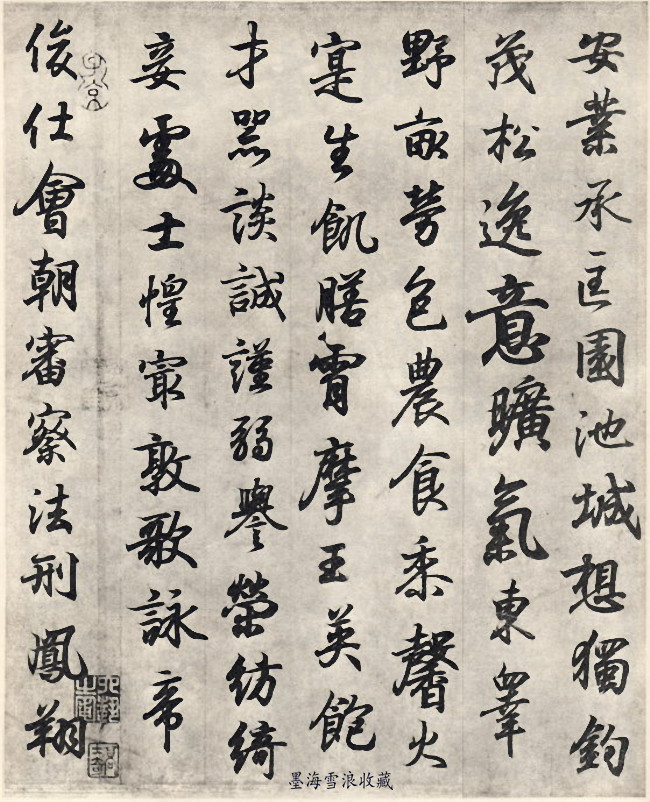 安業承匡園池城想獨鈞
茂松逸意曠氣東睾
野畝勞包農食黍馨火
寔生飢膳宵摩王英飽
才器談誠謹弱譽榮紡綺
妾處士惶寂敦歌詠帝
俊仕會朝審察法刑鳳翔
墨海雪浪收藏